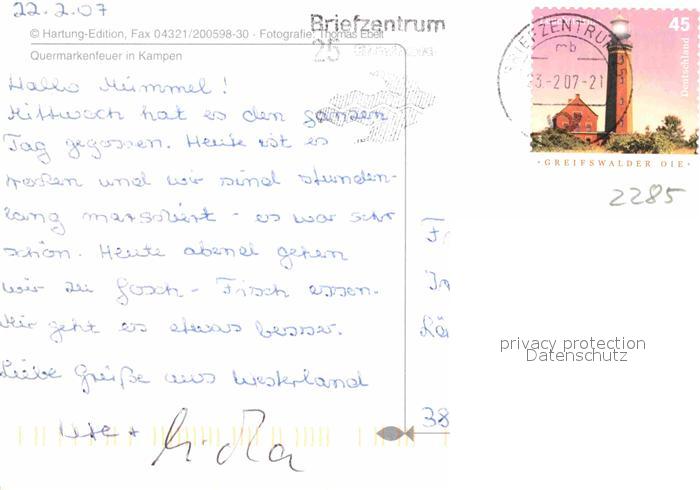 22.2.07
© Hartung-Edition, Fax 04321/200598-30 - Fotografie: Thomas Ebelt
Quermarkenfeuer in Kampen
Briefzentrum
25
Hallo Mümmel!
Mittwoch hat es den ganzen
Tag gegossen. Heute ist es
trocken und wir sind stunden-
lang marschiert - es war sehr
schön. Heute abend gehen
wir zu Gosch - Fisch essen.
Mir geht es etwas besser.
Liebe Grüße aus Westerland
Ute +
45
Deutschland
BRIEFZENTRUM
mb
3.-2.07-21
·GREIFSWALDER OIE·
2285
F
In
38
privacy protection
Datenschutz